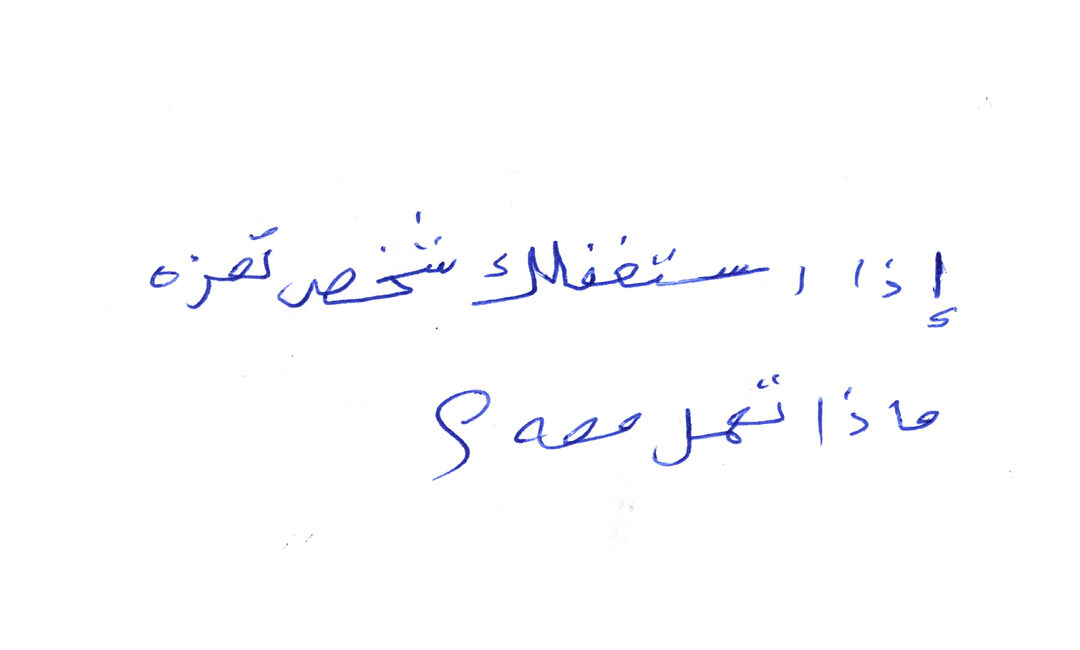 إذا استغفلك شخص تعزه
ماذا تعمل معه ؟